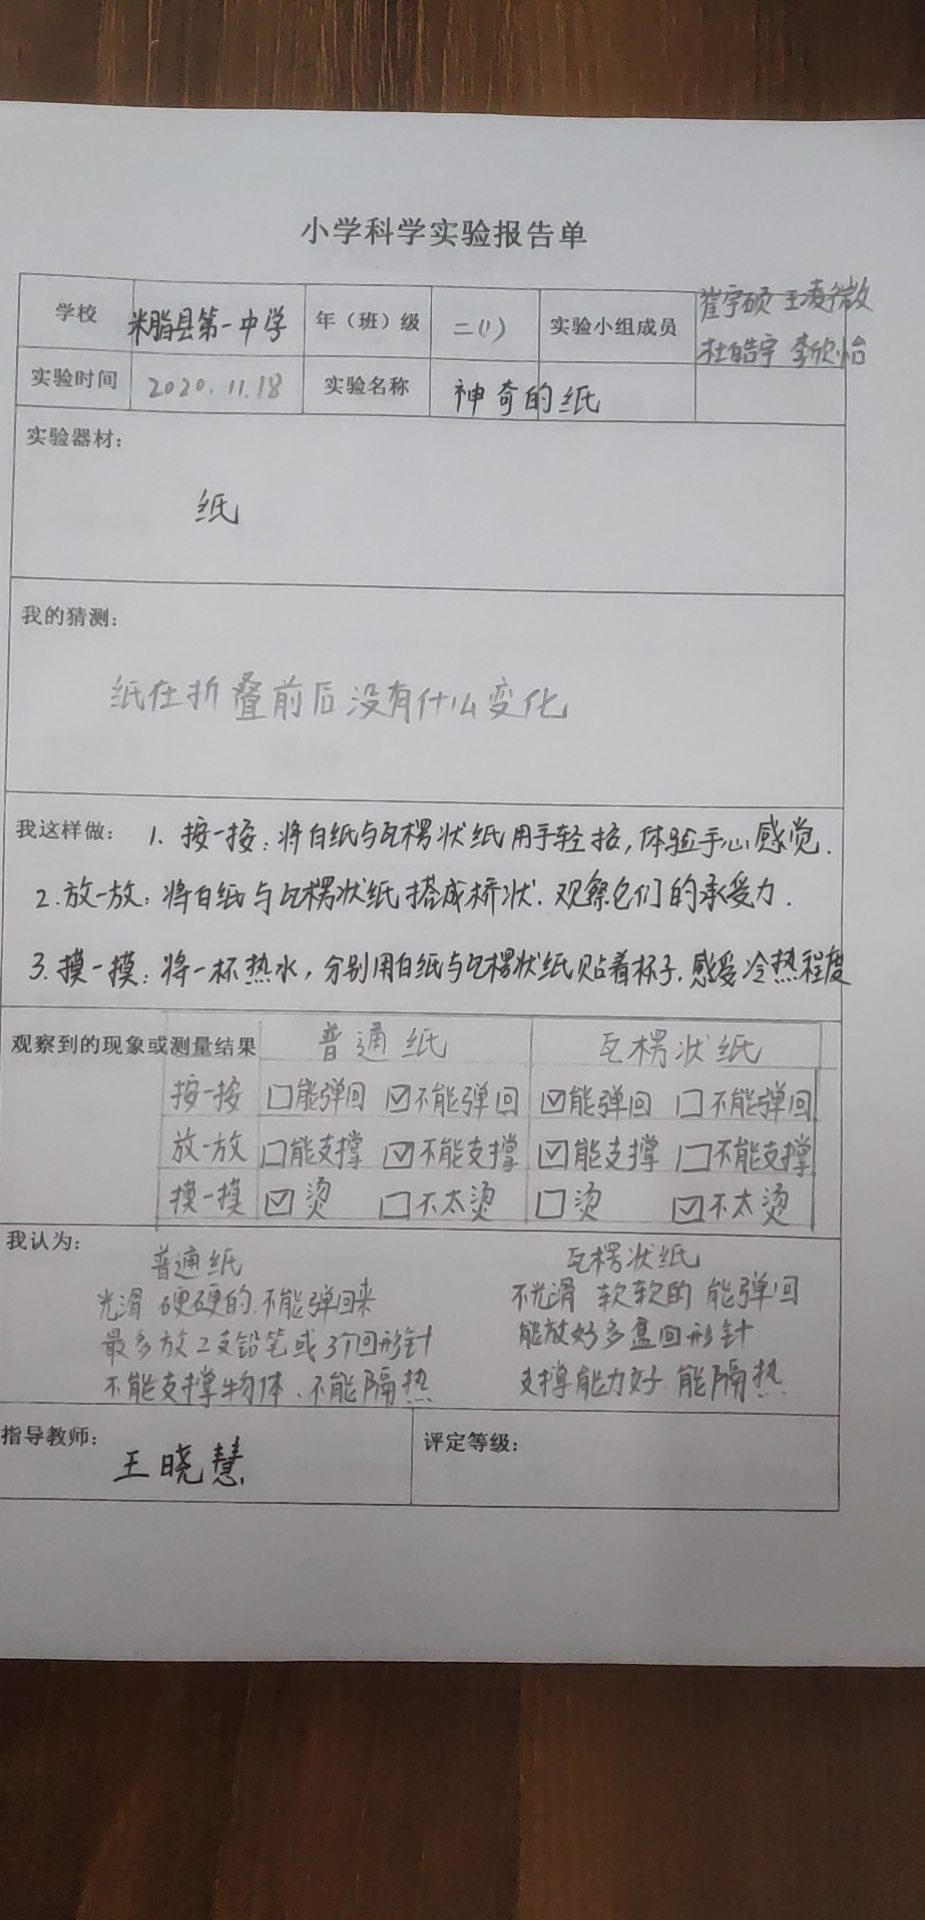 小学科学实验报告单
学校 米脂县第一中学 年（班）级 二(1) 实验小组成员 崔宇硕 王凌微
杜皓宇 李欣怡
实验时间 2020.11.18 实验名称 神奇的纸
实验器材：
纸
我的猜测：
纸在折叠前后没有什么变化
我这样做： 1. 按一按：将白纸与瓦楞状纸用手轻按，体验手心感觉.
2. 放一放：将白纸与瓦楞状纸搭成桥状.观察它们的承受力.
3. 摸一摸：将一杯热水，分别用白纸与瓦楞状纸贴着杯子.感受冷热程度
观察到的现象或测量结果 普通纸 瓦楞状纸
按一按 □能弹回 ☑不能弹回 ☑能弹回 □不能弹回
放一放 □能支撑 ☑不能支撑 ☑能支撑 □不能支撑
摸一摸 ☑烫 □不太烫 □烫 ☑不太烫
我认为： 普通纸 瓦楞状纸
光滑 硬硬的.不能弹回来 不光滑 软软的 能弹回
最多放2支铅笔或3个回形针 能放好多盒回形针
不能支撑物体、不能隔热 支撑能力好 能隔热
指导教师： 王晓慧 评定等级：